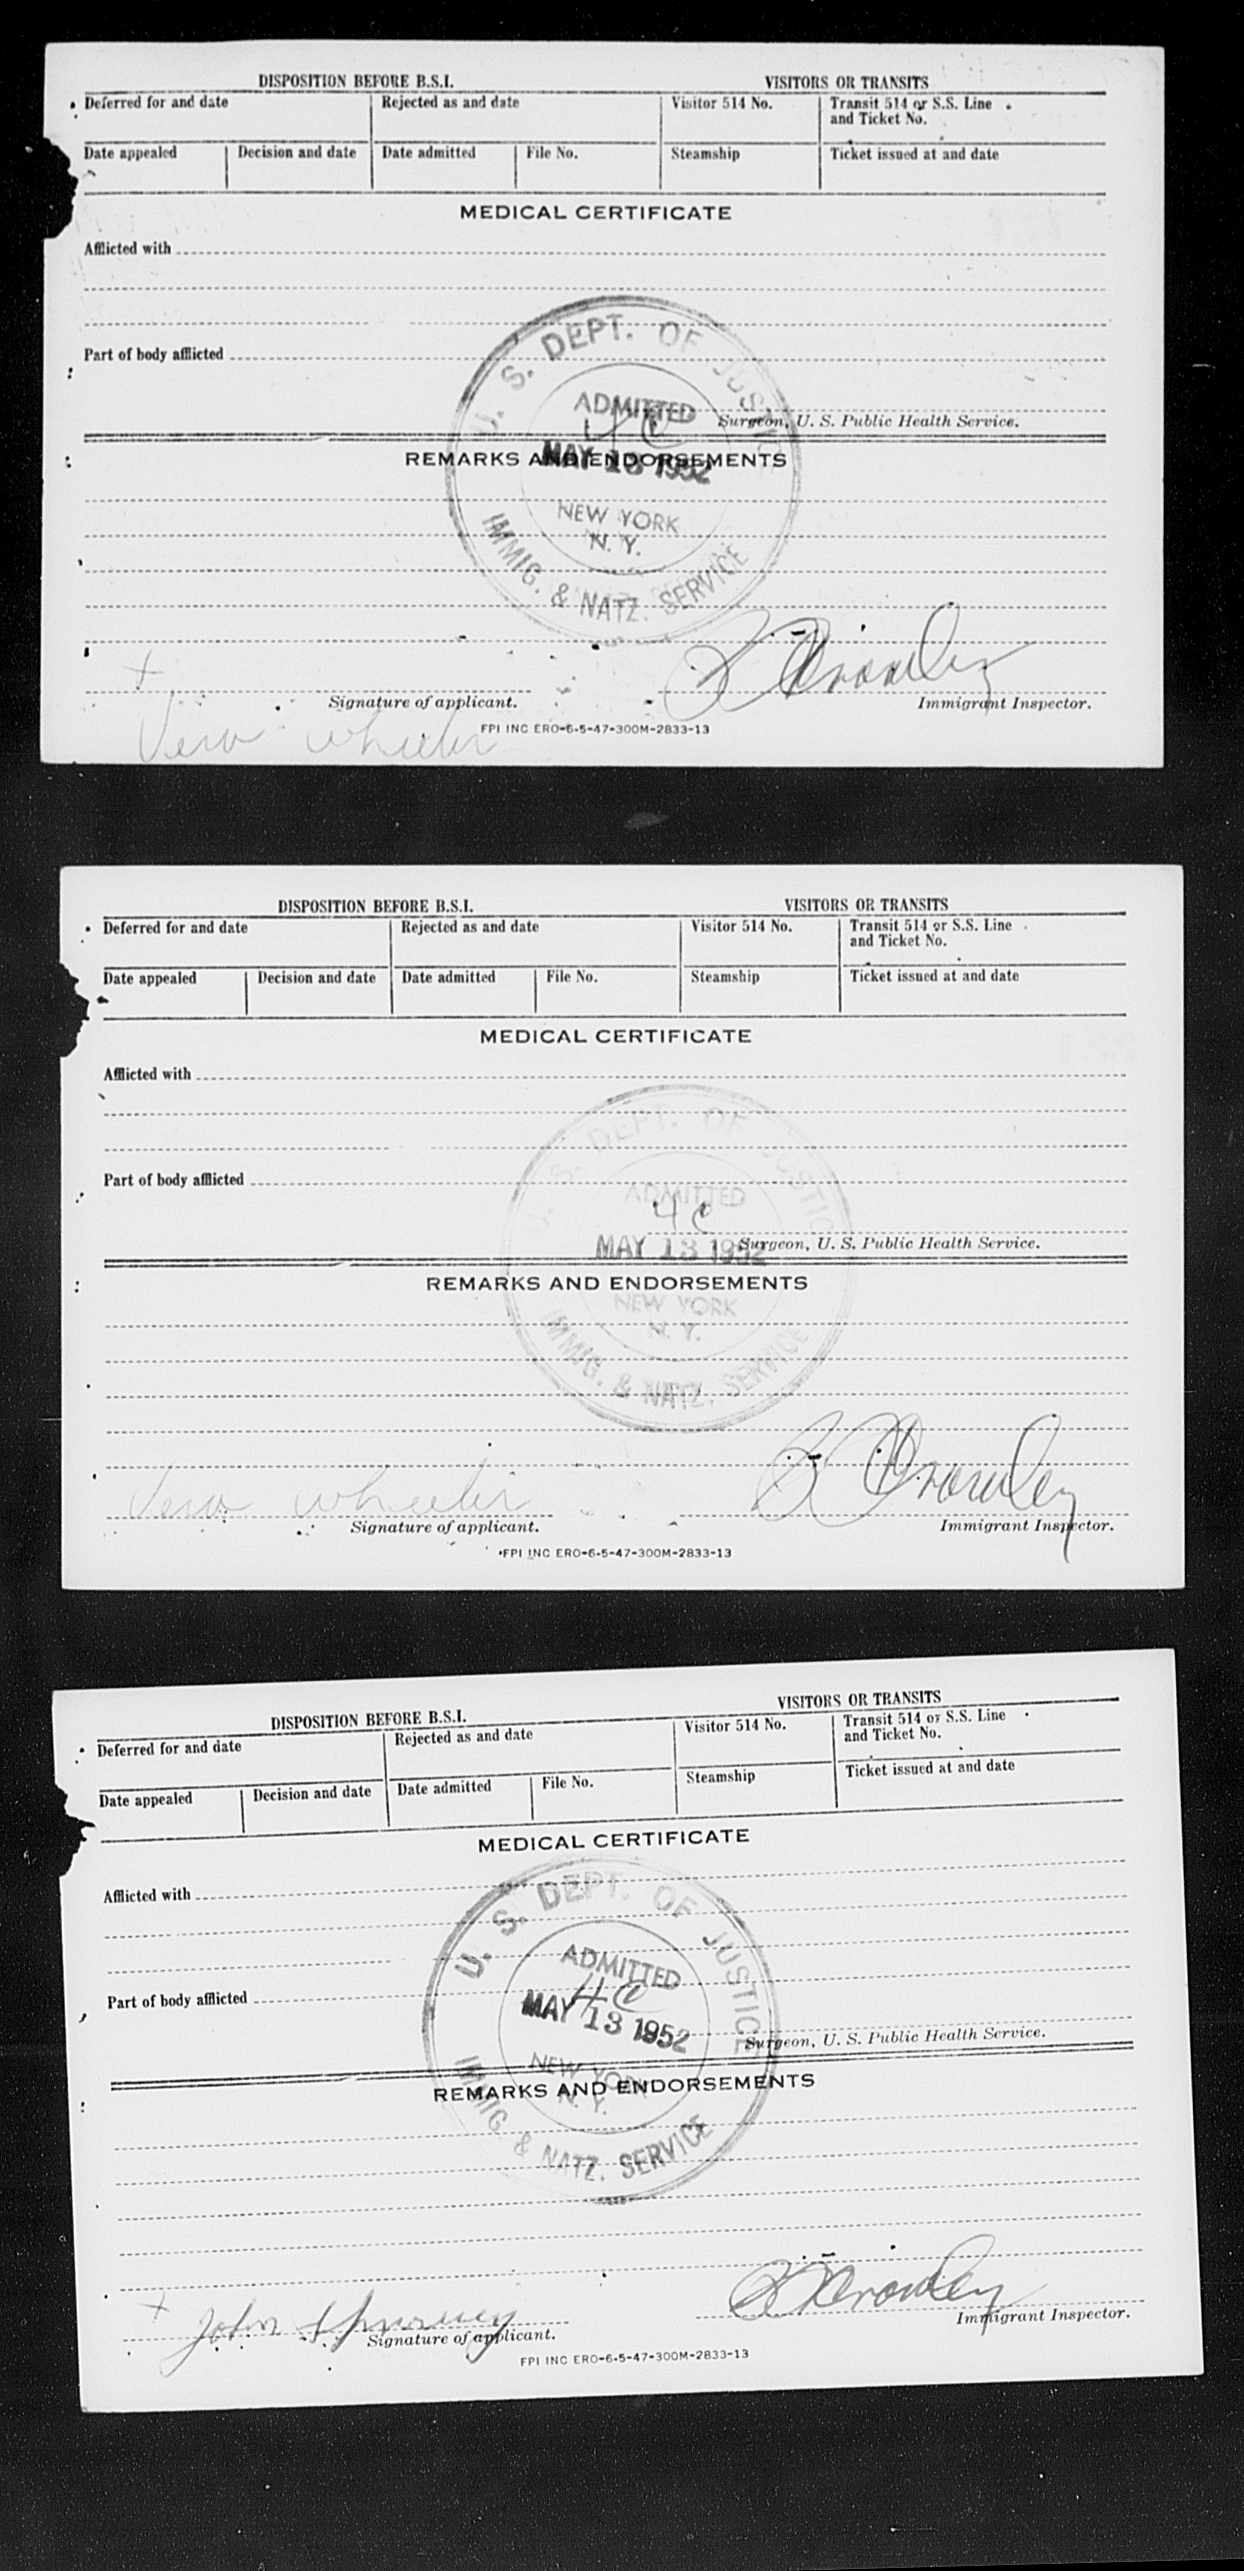 DISPOSITION BEFORE B.S.I. VISITORS OR TRANSITS
Deferred for and date Rejected as and date Visitor 514 No. Transit 514 or S.S. Line
and Ticket No.
Date appealed Decision and date Date admitted File No. Steamship Ticket issued at and date
MEDICAL CERTIFICATE
Afflicted with
Part of body afflicted
U. S. DEPT. OF JUSTICE
ADMITTED
4C
Surgeon, U. S. Public Health Service.
MAY 13 1952
REMARKS AND ENDORSEMENTS
NEW YORK
N. Y.
IMMIG. & NATZ. SERVICE
X
Crowley
Signature of applicant. Immigrant Inspector.
Vera Wheeler
FPI INC ERO-6-5-47-300M-2833-13
DISPOSITION BEFORE B.S.I. VISITORS OR TRANSITS
Deferred for and date Rejected as and date Visitor 514 No. Transit 514 or S.S. Line
and Ticket No.
Date appealed Decision and date Date admitted File No. Steamship Ticket issued at and date
MEDICAL CERTIFICATE
Afflicted with
U. S. DEPT. OF JUSTICE
Part of body afflicted
ADMITTED
4C
MAY 13 1952 Surgeon, U. S. Public Health Service.
REMARKS AND ENDORSEMENTS
NEW YORK
N. Y.
IMMIG. & NATZ. SERVICE
Vera Wheeler Crowley
Signature of applicant. Immigrant Inspector.
FPI INC ERO-6-5-47-300M-2833-13
DISPOSITION BEFORE B.S.I. VISITORS OR TRANSITS
Deferred for and date Rejected as and date Visitor 514 No. Transit 514 or S.S. Line
and Ticket No.
Date appealed Decision and date Date admitted File No. Steamship Ticket issued at and date
MEDICAL CERTIFICATE
Afflicted with
U. S. DEPT. OF JUSTICE
ADMITTED
Part of body afflicted
4C
MAY 13 1952
Surgeon, U. S. Public Health Service.
NEW YORK
REMARKS AND ENDORSEMENTS
N. Y.
IMMIG. & NATZ. SERVICE
X John Crowley
Signature of applicant. Immigrant Inspector.
FPI INC ERO-6-5-47-300M-2833-13